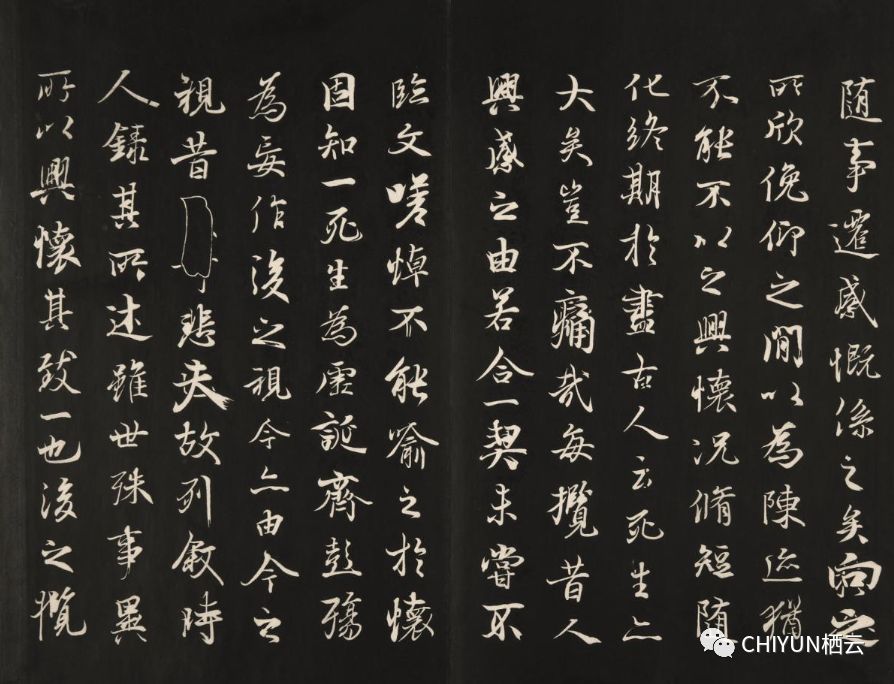 随事遷感慨係之矣向之
所欣俛仰之閒以為陳迹猶
不能不以之興懷況脩短随
化終期於盡古人云死生亦
大矣豈不痛哉每攬昔人
興感之由若合一契未嘗不
臨文嗟悼不能喻之於懷
固知一死生為虛誕齊彭殤
為妄作後之視今亦由今之
視昔悲夫故列敘時
人錄其所述雖世殊事異
所以興懷其致一也後之攬
CHIYUN栖云